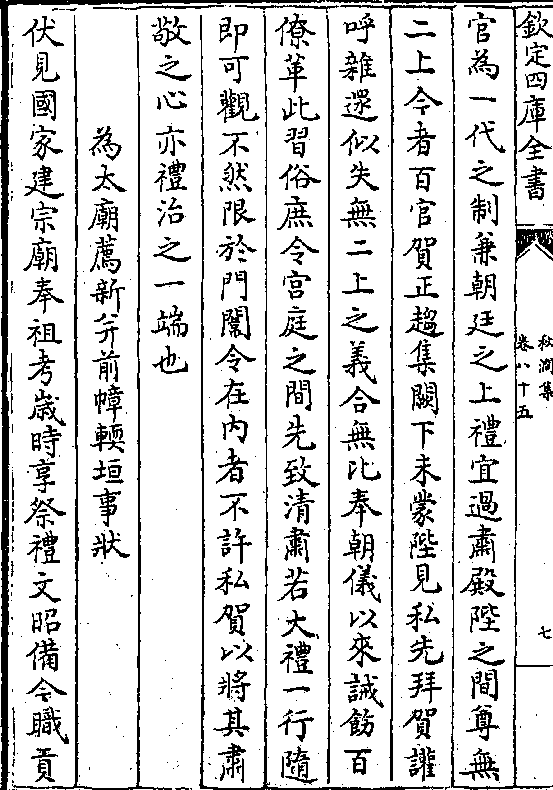 欽定四庫全書
秋澗集
卷八十五
七
官為一代之制兼朝廷之上禮宜過肅殿陛之間尊無
二上今者百官賀正趨集闕下未蒙陛見私先拜賀讙
呼雜遝似失無二上之義合無比奉朝儀以來誡飭百
僚革此習俗庶令宫庭之間先致清肅若大禮一行隨
即可觀不然限於門闥令在内者不許私賀以將其肅
敬之心亦禮治之一端也
為太廟薦新并前幛輭垣事狀
伏見國家建宗廟奉祖考歲時享祭禮文昭備今職貢